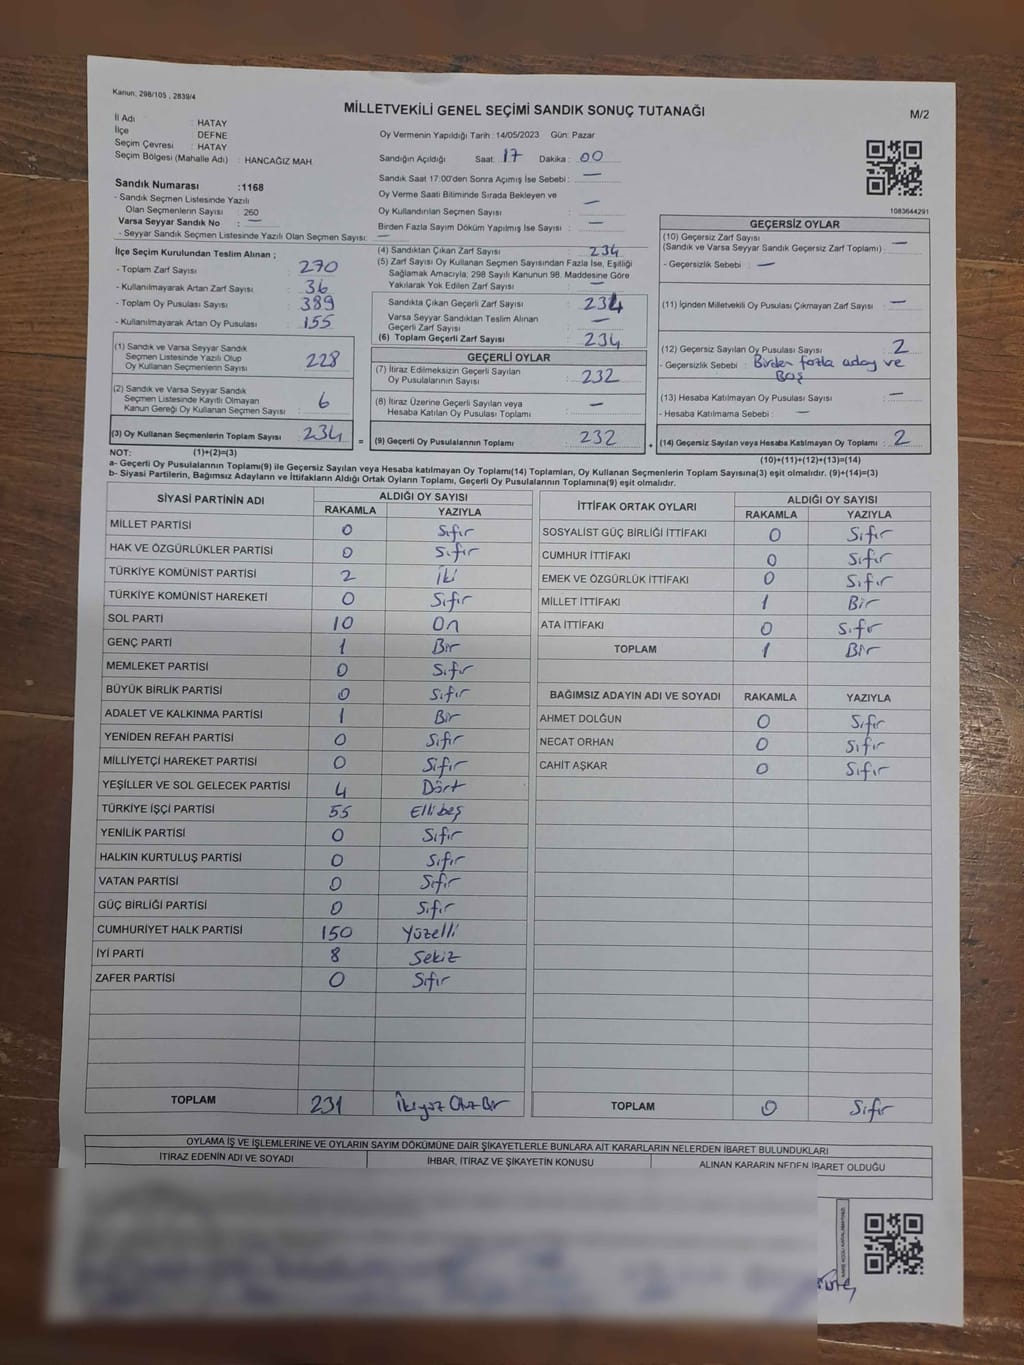 Kanun; 298/105 , 2839/4
MİLLETVEKİLİ GENEL SEÇİMİ SANDIK SONUÇ TUTANAĞI
M/2
İl Adı : HATAY
İlçe : DEFNE
Seçim Çevresi : HATAY
Seçim Bölgesi (Mahalle Adı) : HANCAĞIZ MAH.
Oy Vermenin Yapıldığı Tarih : 14/05/2023 Gün: Pazar
Sandığın Açıldığı Saat: 17 Dakika : 00
Sandık Saat 17:00'den Sonra Açımış İse Sebebi : —
Oy Verme Saati Bitiminde Sırada Bekleyen ve
Oy Kullandırılan Seçmen Sayısı : —
Birden Fazla Sayım Döküm Yapılmış İse Sayısı : —
1083644291
Sandık Numarası :1168
- Sandık Seçmen Listesinde Yazılı
Olan Seçmenlerin Sayısı : 260
Varsa Seyyar Sandık No : —
- Seyyar Sandık Seçmen Listesinde Yazılı Olan Seçmen Sayısı: —
İlçe Seçim Kurulundan Teslim Alınan ;
- Toplam Zarf Sayısı : 270
- Kullanılmayarak Artan Zarf Sayısı : 36
- Toplam Oy Pusulası Sayısı : 389
- Kullanılmayarak Artan Oy Pusulası : 155
(1) Sandık ve Varsa Seyyar Sandık
Seçmen Listesinde Yazılı Olup
Oy Kullanan Seçmenlerin Sayısı : 228
(2) Sandık ve Varsa Seyyar Sandık
Seçmen Listesinde Kayıtlı Olmayan
Kanun Gereği Oy Kullanan Seçmen Sayısı : 6
(3) Oy Kullanan Seçmenlerin Toplam Sayısı : 234 =
(4) Sandıktan Çıkan Zarf Sayısı : 234
(5) Zarf Sayısı Oy Kullanan Seçmen Sayısından Fazla İse, Eşitliği
Sağlamak Amacıyla; 298 Sayılı Kanunun 98. Maddesine Göre
Yakılarak Yok Edilen Zarf Sayısı : —
Sandıkta Çıkan Geçerli Zarf Sayısı : 234
Varsa Seyyar Sandıktan Teslim Alınan
Geçerli Zarf Sayısı : —
(6) Toplam Geçerli Zarf Sayısı : 234
GEÇERLİ OYLAR
(7) İtiraz Edilmeksizin Geçerli Sayılan
Oy Pusulalarının Sayısı : 232
(8) İtiraz Üzerine Geçerli Sayılan veya
Hesaba Katılan Oy Pusulası Toplamı : —
(9) Geçerli Oy Pusulalarının Toplamı : 232 +
GEÇERSİZ OYLAR
(10) Geçersiz Zarf Sayısı
(Sandık ve Varsa Seyyar Sandık Geçersiz Zarf Toplamı) : —
- Geçersizlik Sebebi : —
(11) İçinden Milletvekili Oy Pusulası Çıkmayan Zarf Sayısı : —
(12) Geçersiz Sayılan Oy Pusulası Sayısı : 2
- Geçersizlik Sebebi : Birden fazla aday ve
Boş
(13) Hesaba Katılmayan Oy Pusulası Sayısı : —
- Hesaba Katılmama Sebebi : —
(14) Geçersiz Sayılan veya Hesaba Katılmayan Oy Toplamı : 2
NOT: (1)+(2)=(3)
(10)+(11)+(12)+(13)=(14)
a- Geçerli Oy Pusulalarının Toplamı(9) ile Geçersiz Sayılan veya Hesaba katılmayan Oy Toplamı(14) Toplamları, Oy Kullanan Seçmenlerin Toplam Sayısına(3) eşit olmalıdır. (9)+(14)=(3)
b- Siyasi Partilerin, Bağımsız Adayların ve İttifakların Aldığı Ortak Oyların Toplamı, Geçerli Oy Pusulalarının Toplamına(9) eşit olmalıdır.
SİYASİ PARTİNİN ADI ALDIĞI OY SAYISI
RAKAMLA YAZIYLA
MİLLET PARTİSİ 0 Sıfır
HAK VE ÖZGÜRLÜKLER PARTİSİ 0 Sıfır
TÜRKİYE KOMÜNİST PARTİSİ 2 İki
TÜRKİYE KOMÜNİST HAREKETİ 0 Sıfır
SOL PARTİ 10 On
GENÇ PARTİ 1 Bir
MEMLEKET PARTİSİ 0 Sıfır
BÜYÜK BİRLİK PARTİSİ 0 Sıfır
ADALET VE KALKINMA PARTİSİ 1 Bir
YENİDEN REFAH PARTİSİ 0 Sıfır
MİLLİYETÇİ HAREKET PARTİSİ 0 Sıfır
YEŞİLLER VE SOL GELECEK PARTİSİ 4 Dört
TÜRKİYE İŞÇİ PARTİSİ 55 Ellibeş
YENİLİK PARTİSİ 0 Sıfır
HALKIN KURTULUŞ PARTİSİ 0 Sıfır
VATAN PARTİSİ 0 Sıfır
GÜÇ BİRLİĞİ PARTİSİ 0 Sıfır
CUMHURİYET HALK PARTİSİ 150 Yüzelli
İYİ PARTİ 8 Sekiz
ZAFER PARTİSİ 0 Sıfır
TOPLAM 231 İkiyüz Otuz Bir
İTTİFAK ORTAK OYLARI ALDIĞI OY SAYISI
RAKAMLA YAZIYLA
SOSYALİST GÜÇ BİRLİĞİ İTTİFAKI 0 Sıfır
CUMHUR İTTİFAKI 0 Sıfır
EMEK VE ÖZGÜRLÜK İTTİFAKI 0 Sıfır
MİLLET İTTİFAKI 1 Bir
ATA İTTİFAKI 0 Sıfır
TOPLAM 1 Bir
BAĞIMSIZ ADAYIN ADI VE SOYADI RAKAMLA YAZIYLA
AHMET DOLĞUN 0 Sıfır
NECAT ORHAN 0 Sıfır
CAHİT AŞKAR 0 Sıfır
TOPLAM 0 Sıfır
OYLAMA İŞ VE İŞLEMLERİNE VE OYLARIN SAYIM DÖKÜMÜNE DAİR ŞİKAYETLERLE BUNLARA AİT KARARLARIN NELERDEN İBARET BULUNDUKLARI
İTİRAZ EDENİN ADI VE SOYADI İHBAR, İTİRAZ VE ŞİKAYETİN KONUSU ALINAN KARARIN NEDEN İBARET OLDUĞU